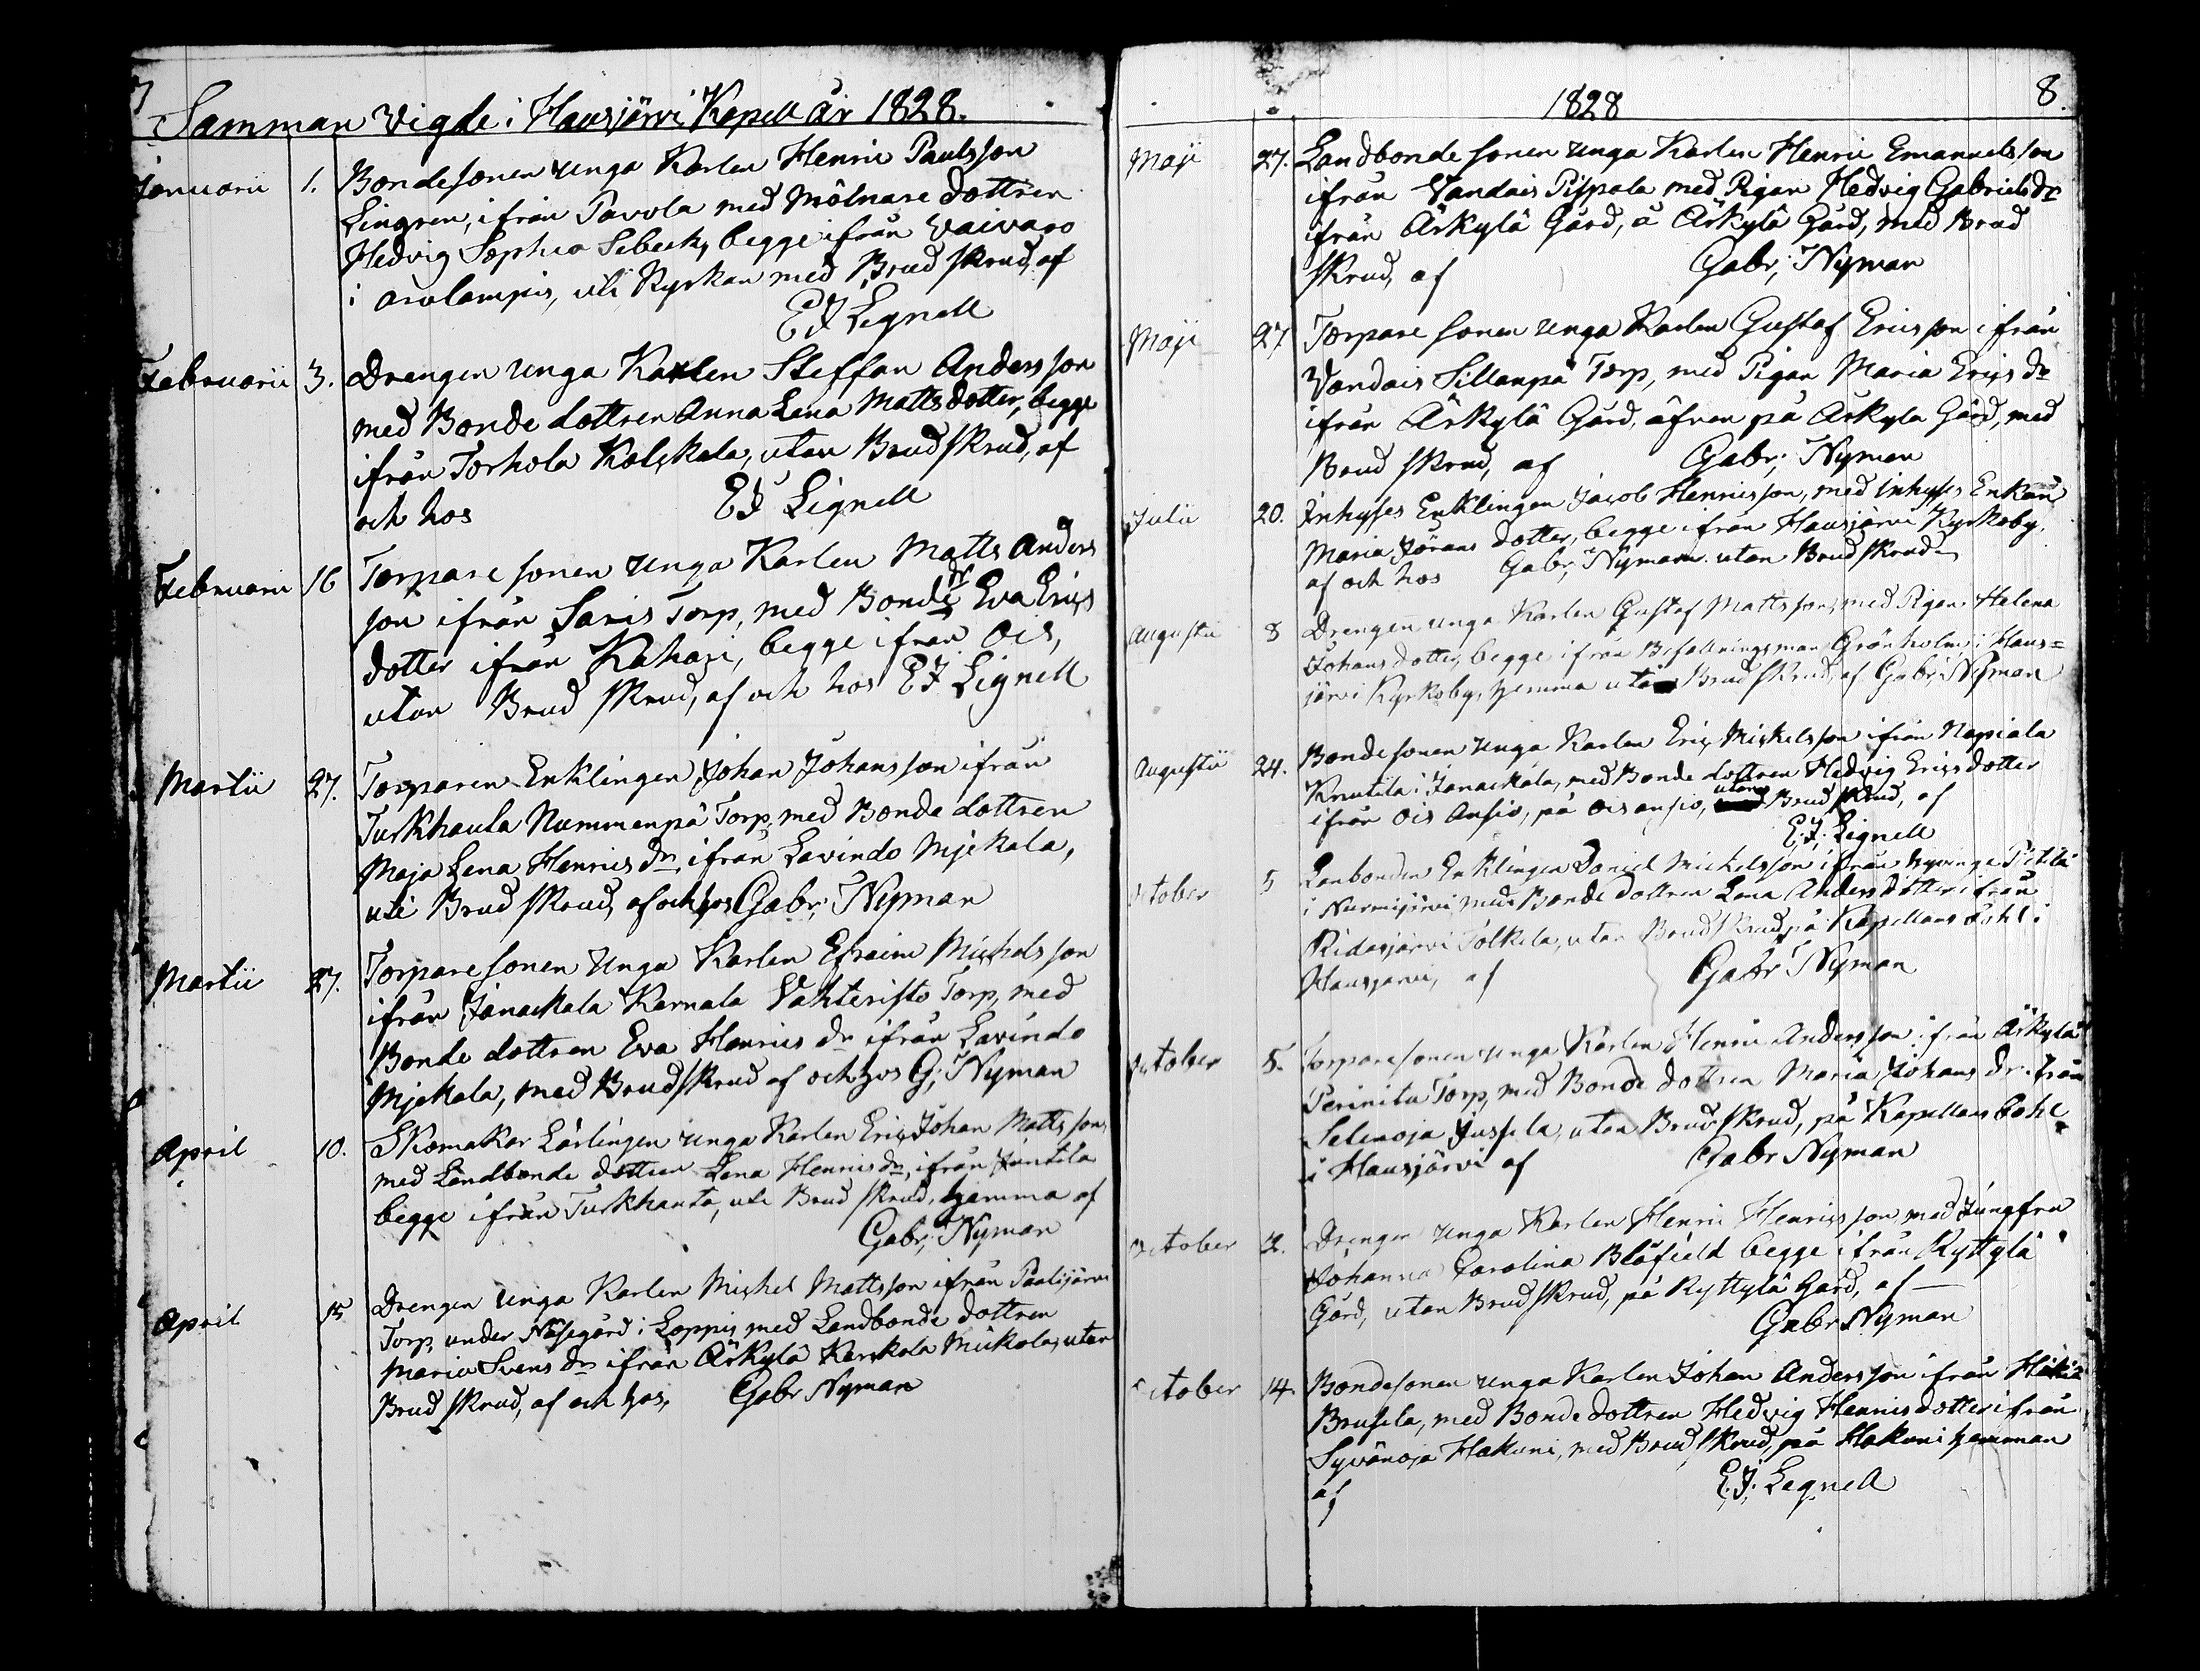 7
Samman vigde i Hausjärvi Kapell år 1828.
Januarii 1. Bondesonen unga Karlen Henric Paulsson
Lingren, ifrån Pavola med Mölnare dottren
Hedvig Sophia Sebeck, begge ifrån Vaivaro
i arolampis, uti Kyrkan med Brud skrud, af
EJ Lignell
Februarii 3. Drengen unga Karlen Steffan Andersson
med Bonde dottren Anna Lena Mattsdotter, begge
ifrån Torhola Kolskala, utan Brud skrud, af
och hos EJ Lignell
Februarii 16 Torpare sonen unga Karlen Matts Anders
son ifrån Saris Torp, med Bonde dr Eva Erics
dotter ifrån Kahari, begge ifrån Ois,
utan Brud skrud, af och hos EJ Lignell
Martii 27. Torparen Enklingen Johan Johansson ifrån
Turkhauta Nummenpä Torp, med Bonde dottren
Maja Lena Henricsdr, ifrån Lavindo Mjekala,
uti Brud skrud, af och hos Gabr; Nyman
Martii 27. Torpare sonen Unga Karlen Efraim Michelsson
ifrån Janackala Kernala Vahteristo Torp, med
Bonde dottren Eva Henrics dr ifrån Lavindo
Mjekala, med Brud skrud af och hos G; Nyman
April 10. Skomakar Lärlingen unga Karlen Eric Johan Mattsson,
med Landbonde dottren Lena Henricsdr, ifrån Jäntila
begge ifrån Turkhauta, uti Brud skrud, hemma af
Gabr; Nyman
April 15 Drengen unga Karlen Michel Mattsson ifrån Paalijärvi
Torp, under Näsegård i Loppis, med Landbonde dottren
Maria Svens dr ifrån Ärkylä Karskola Mickola, utan
Brud skrud, af och hos, Gabr Nyman
8.
1828
Maji 27. Landbonde sonen unga Karlen Henric Emanuelsson
ifrån Vandais Pispala med Pigan Hedvig Gabrielsdr
ifrån Ärkylä Gård, å Ärkylä Gård, med Brud
skrud, af Gabr; Nyman
Maji 27 Torpare sonen unga Karlen Gustaf Ericsson ifrån
Vandais Sillanpä Torp, med Pigan Maria Erics dr
ifrån Ärkylä Gård, äfven på Ärkyla Gård, med
Brud skrud, af Gabr; Nyman
Julii 20. Inhyses Enklingen Jacob Henricsson, med inhyses Enkan
Maria Jörans dotter, begge ifrån Hausjärvi Kyrkoby,
af och hos Gabr; Nyman. utan Brud skrud
Augustii 8 Drengen unga Karlen Gustaf Mattsson, med Pigan Helena
Johans dotter, begge ifrån Befallningsman Grönholm i Haus=
järvi Kyrkoby, hemma utan Brud skrud, af Gabr; Nyman
Augustii 24. Bondesonen unga Karlen Eric Mickelsson ifrån Napiala
Knutila i Janackala, med Bonde dottren Hedvig Ericsdotter
ifrån Ois Ansio, på Ois ansio, utan Brud skrud, af
E.J. Lignell
October 5 Lanbonden Enklingen Daniel Mickelsson ifrån hyvinge Pietilä
i Nurmijärvi, med Bonde dottren Lena Andersdotter ifrån
Ridasjärvi Tolkila, utan Brud skrud, på Kapellans bohl i
Hausjärvi, af Gabr Nyman
October 5. Torpare sonen unga Karlen Henric Andersson ifrån Äkylä
Perinitu Torp, med Bonde dottren Maria Johans dr ifrån
Selenoja Jussila, utan Brud skrud, på Kapellans bohl
i Hausjärvi af Gabr Nyman
October 7. Drengen unga Karlen Henric Henricsson, med Jungfru
Johanna Carolina Blåfield begge ifrån Ryttylä
Gård, utan Brud skrud, på Ryttylä Gård, af
Gabr Nyman
October 14. Bondesonen unga Karlen Johan Andersson ifrån Hikiä
Brusila, med Bonde dottren Hedvig Henricsdotter ifrån
Syvänoja Hakuni, med Brud skrud, på Hakuni hemman
af E.J. Legnell